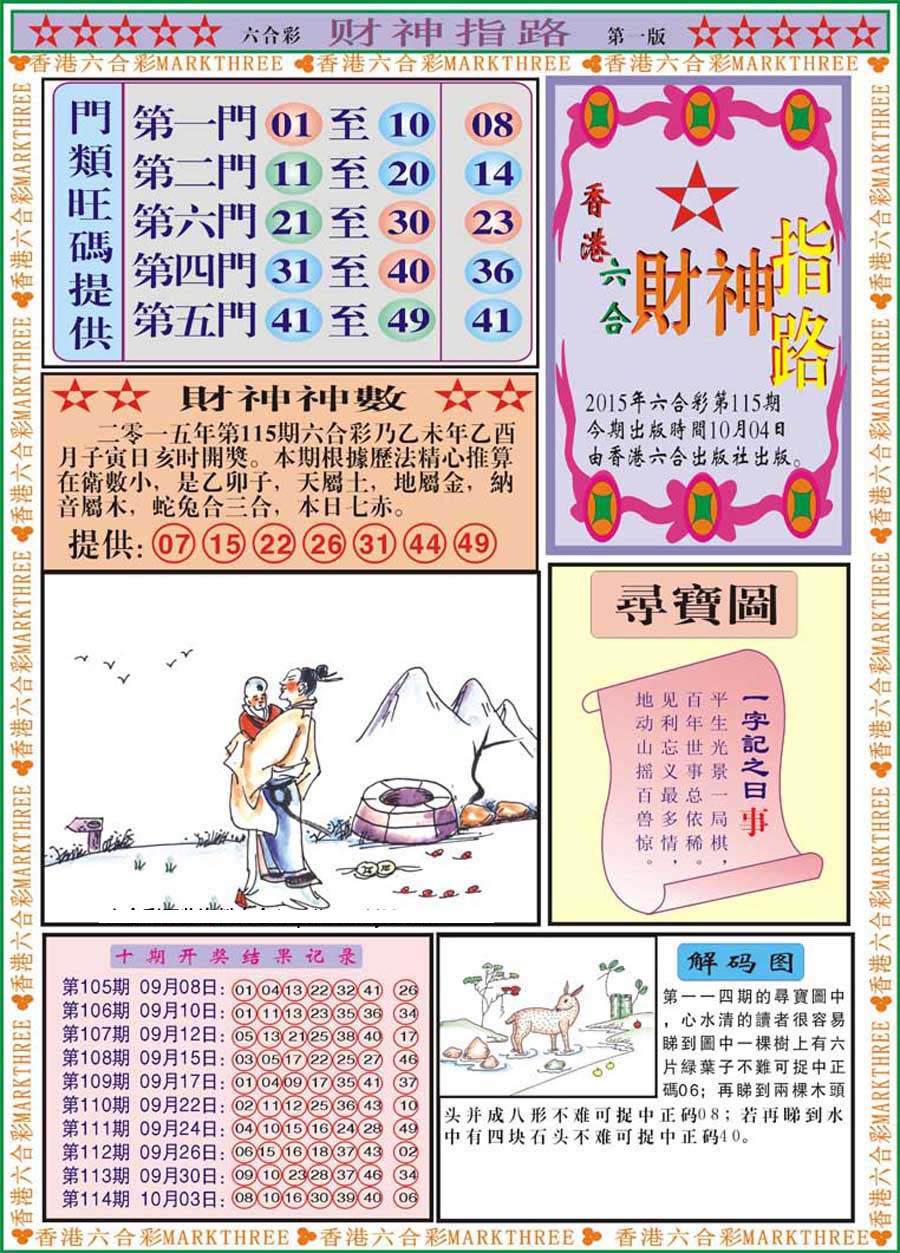 六合彩 财神指路 第一版
香港六合彩MARKTHREE 香港六合彩MARKTHREE 香港六合彩MARKTHREE
門類旺碼提供
第一門 01 至 10 08
第二門 11 至 20 14
第六門 21 至 30 23
第四門 31 至 40 36
第五門 41 至 49 41
香港六合
財神指路
2015年六合彩第115期
今期出版時間10月04日
由香港六合出版社出版。
財神神數
二零一五年第115期六合彩乃乙未年乙酉
月子寅日亥时開獎。本期根據歷法精心推算
在術數小，是乙卯子，天屬土，地屬金，納
音屬木，蛇兔合三合，本日七赤。
提供: 07 15 22 26 31 44 49
尋寶圖
一字記之曰 事
平生光景一局棋，
百年世事总依稀。
见利忘义最多情，
地动山摇百兽惊。
十期开奖结果记录
第105期 09月08日: 01 04 13 22 32 41 26
第106期 09月10日: 01 11 13 23 35 36 34
第107期 09月12日: 05 13 21 25 38 40 17
第108期 09月15日: 03 05 17 22 25 27 46
第109期 09月17日: 01 04 09 17 35 41 37
第110期 09月22日: 02 11 12 25 36 43 10
第111期 09月24日: 04 10 15 16 24 28 49
第112期 09月26日: 06 15 16 18 37 43 02
第113期 09月30日: 09 10 23 28 37 46 34
第114期 10月03日: 08 10 16 30 39 40 06
解码图
第一一四期的尋寶圖中
，心水清的讀者很容易
睇到圖中一棵樹上有六
片綠葉子不難可捉中正
碼06；再睇到兩棵木頭
头并成八形不难可捉中正码08；若再睇到水
中有四块石头不难可捉中正码40。
香港六合彩MARKTHREE 香港六合彩MARKTHREE 香港六合彩MARKTHREE
香港六合彩MARKTHREE 香港六合彩MARKTHREE 香港六合彩MARKTHREE 香港六合彩MARKTHREE 香港六合彩MARKTHREE
香港六合彩MARKTHREE 香港六合彩MARKTHREE 香港六合彩MARKTHREE 香港六合彩MARKTHREE 香港六合彩MARKTHREE